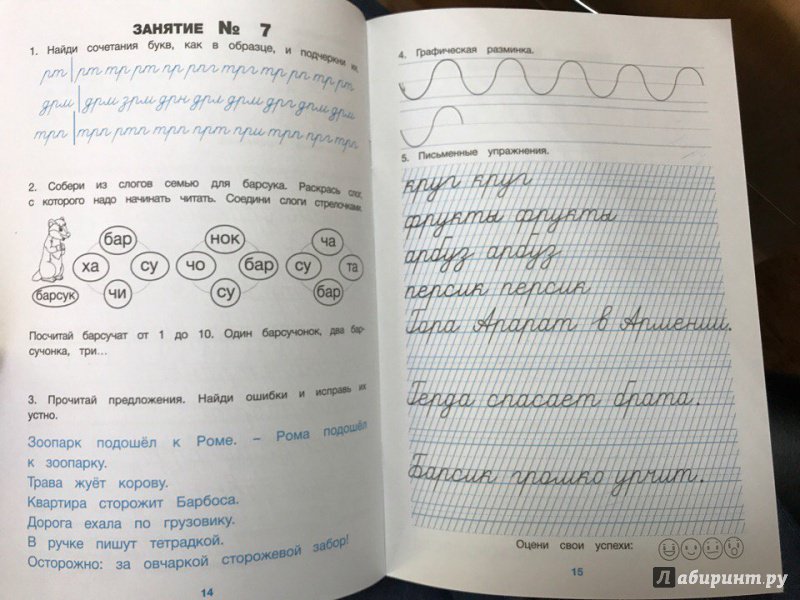 ЗАНЯТИЕ № 7
1. Найди сочетания букв, как в образце, и подчеркни их.
рт | рт тр рт пр рпг трг тр рп тр рт
дрм | дрм зрм дрн дрл дрм дрг дпм дрм
трп | трп ртп трп прт при трп прг трп
2. Собери из слогов семью для барсука. Раскрась слог,
с которого надо начинать читать. Соедини слоги стрелочками.
барсук
бар
ха су
чи
нок
чо бар
су
ча
су та
бар
Посчитай барсучат от 1 до 10. Один барсучонок, два бар-
сучонка, три...
3. Прочитай предложения. Найди ошибки и исправь их
устно.
Зоопарк подошёл к Роме. – Рома подошёл
к зоопарку.
Трава жуёт корову.
Квартира сторожит Барбоса.
Дорога ехала по грузовику.
В ручке пишут тетрадкой.
Осторожно: за овчаркой сторожевой забор!
14
4. Графическая разминка.
5. Письменные упражнения.
круг круг
фрукты фрукты
арбуз арбуз
персик персик
Гора Арарат в Армении.
Герда спасает брата.
Барсик громко урчит.
Оцени свои успехи:
15
Лабиринт.ру